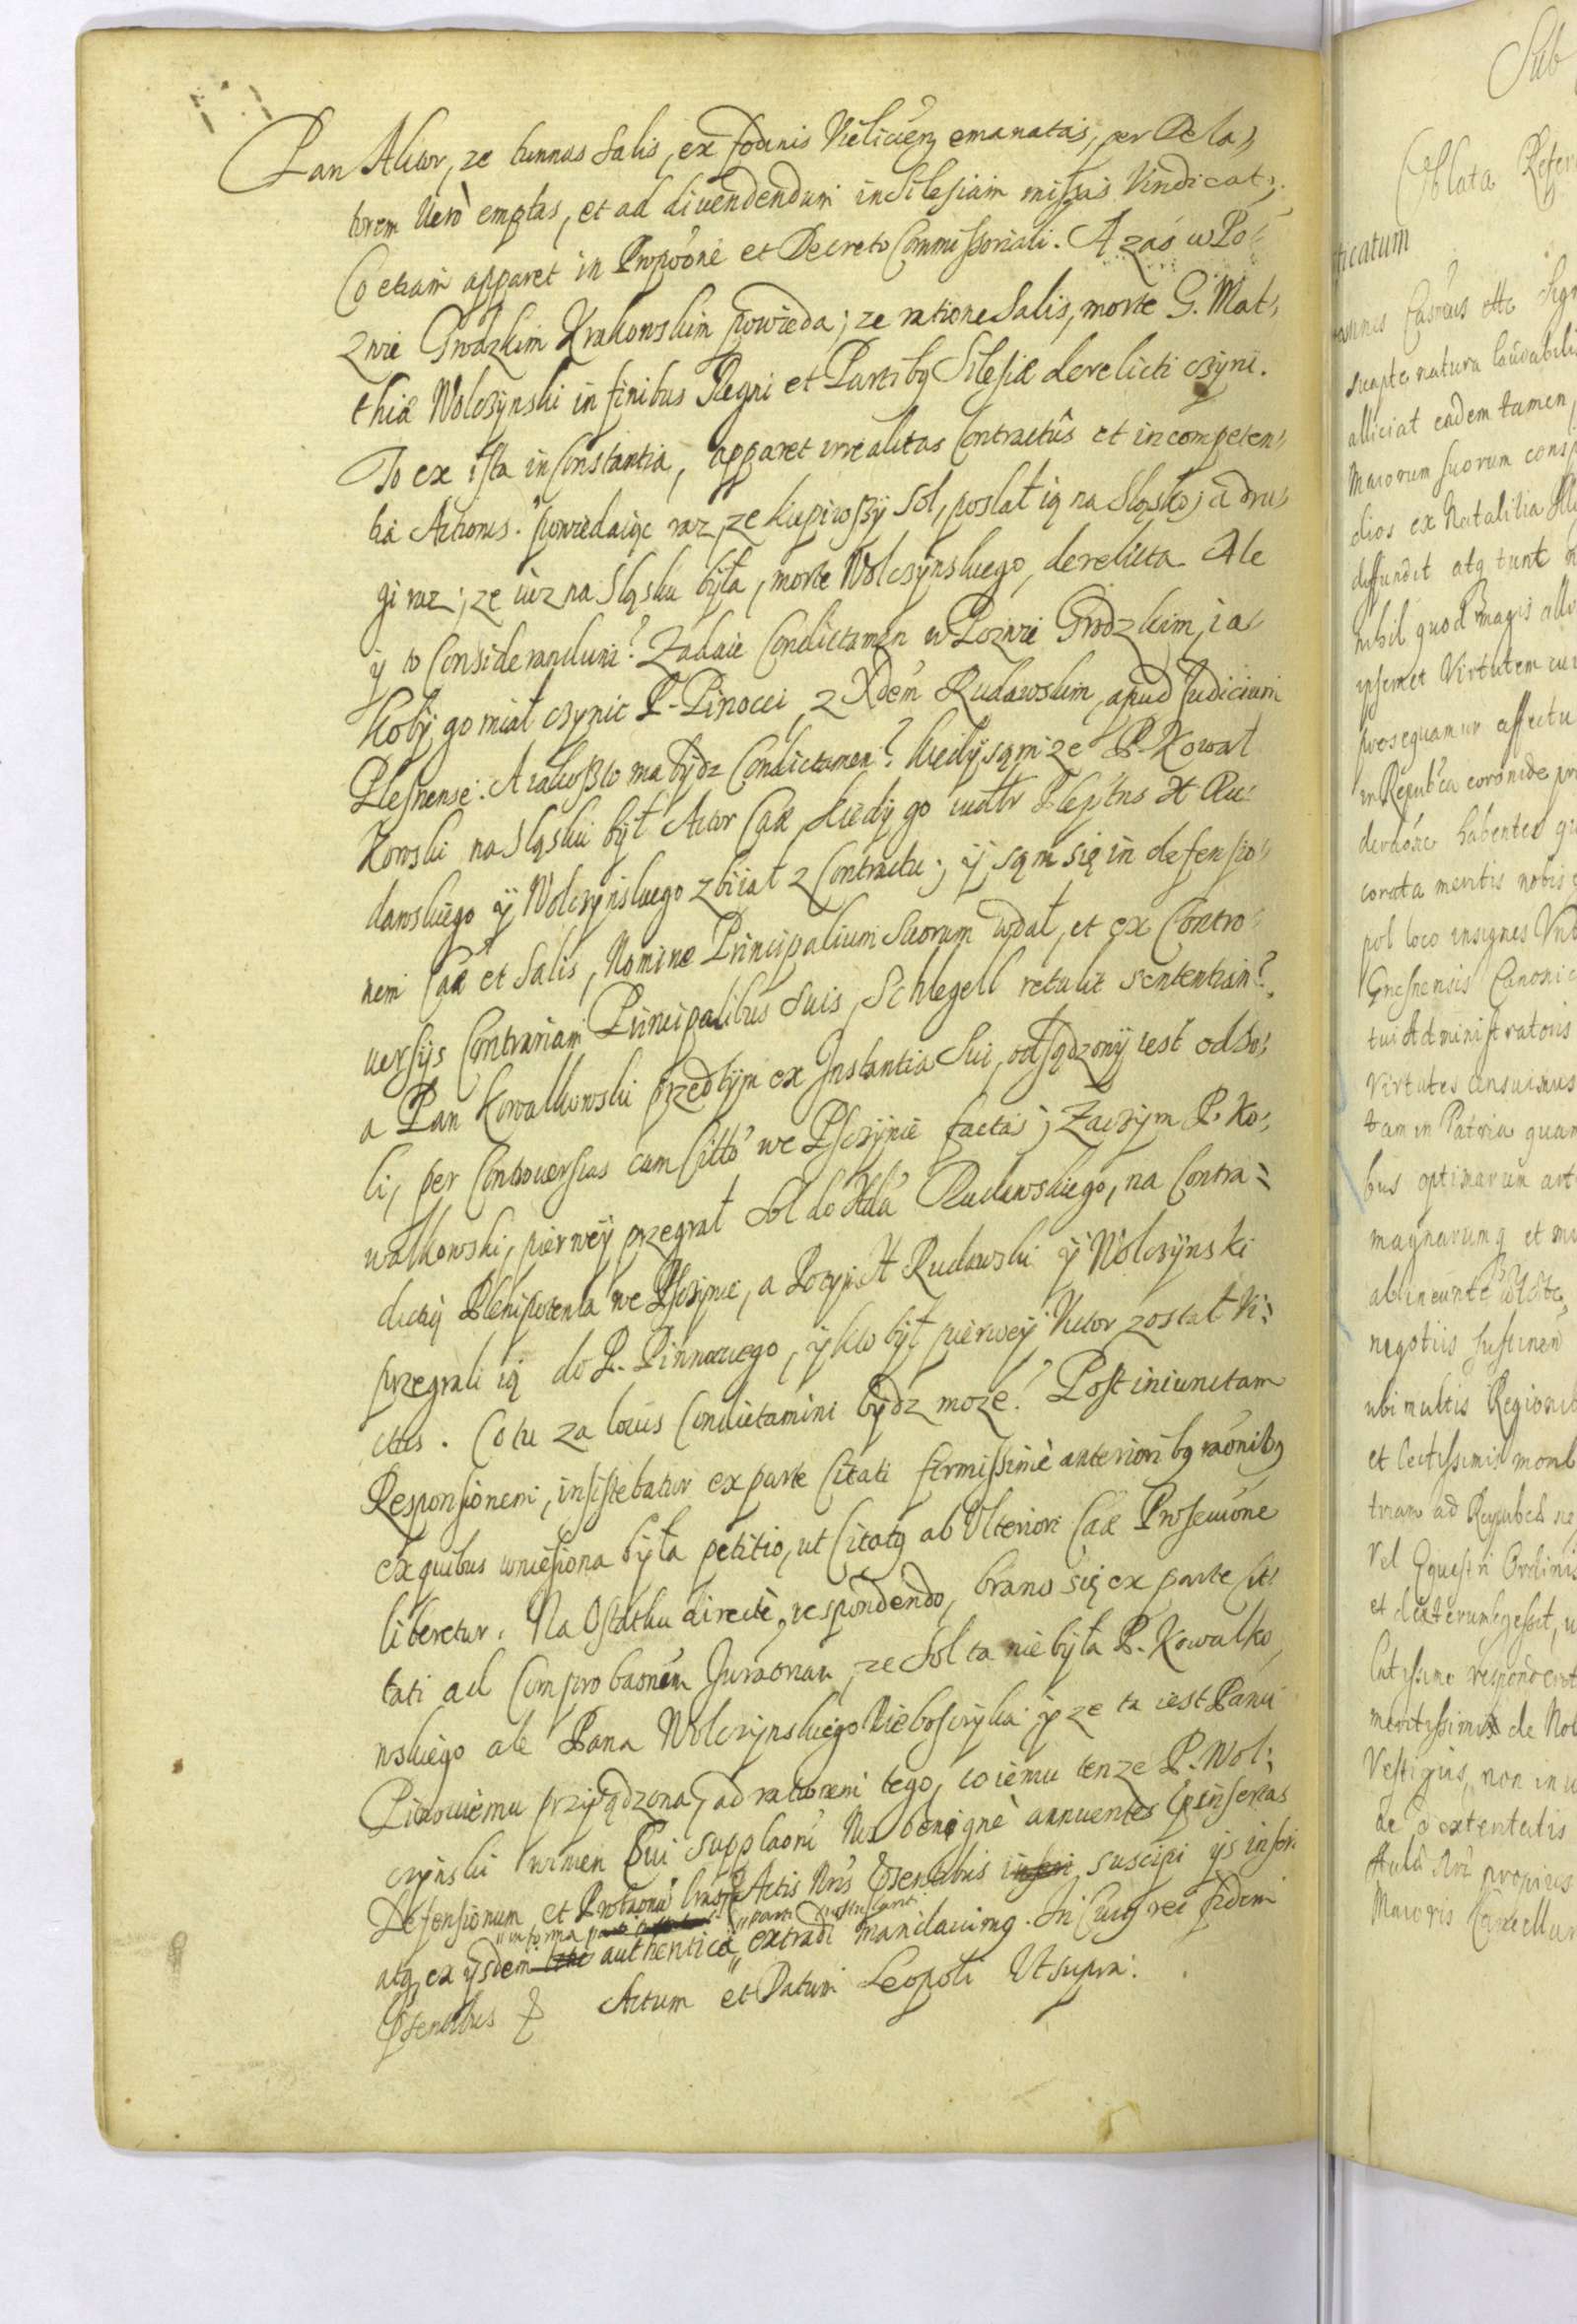 Pan Aktor, ze tunnas Salis, ex fodinis Vielicien emanatas, per Dela,
torem Vero emptas, et ad divendendum in Silesiam missas Vindicat,
Co etiam apparet in Propoõne et Decreto Commissoriali. A zaś w Po,
zwie Grodzkim Krakowskim powieda; ze ratione Salis, morte G. Mat,
thiæ Wolczynski in finibus Regni et Partibg Silesiæ derelicti czyni.
To ex ista inconstantia, apparet irrealitas Contractûs et incompeten,
tia Actionis. powiedaiąc raz, ze kupiwszy Sol, poslał ią na Sląsko; a dru,
gi raz; ze iuz na Sląsku była, morte Wolczynskiego, derelicta. Ale
y to Considerandum? Zadaie Condictamen w Pozwie Grodzkim, ia,
koby go miał czynic P. Pinocci, z Xdem Rudawskim, apud Judicium
Plesnense. A iakoszto ma bydz Condictamen? kiedy sąmze P. Kowal
Kowski na Sląsku był Actor Cæ, kiedy go
dawskiego y Wolczynskiego zbiiał z Contractu; y sąm się in defensio,
nem Cæ et Salis, Nomine Principalium Suorum wdał, et ex Contro,
versijs Contrariam Principalibus Suis, Schlegell retulit sententiam?
a Pan Kowalkowski przedtym ex Instantia Sui, odsądzony iest od So,
li, per Controversias cum Citto we Psczynie factas; Zaczym P. Ko,
walkowski, pierwey przegrał Sol do Xda Rudawskiego, na Contra=
dictij Plenipotenta we Psczynie, a potym X Rudawski y Wolczynski
przegrali ią do P. Pinnocciego, y kto był pierwey Actor został Vi=
ctus. Co tu za locus Condictamini bydz moze? Post iniunctam
Responsionem, insistebatur ex parte Citati firmissime anterioribg raõnibg
ex quibus wniesiona była petitio, ut Citatg ab Ulteriori Cæ Prosecuõne
liberetur. Na Ostatku directe respondendo, brano się ex parte Ci,
tati ad Comprobaõnem Iuratoriam, ze Sol ta nie była P. Kowalko,
wskiego ale Pana Wolczynskiego Nieboszczyka: y ze ta iest Panu
Pinocciemu przysądzona, ad rationem tego, co iemu tenze P. Wol,
czynski winien Cui supplaõni Nos benigne annuentes insertas
Defensionum et Actis Nris pñtibus suscipi ijs inseri
atg ex ijsdem authentice extradi mandavimg. In Cuig rei fidem
pñtibus Actum et Datum Leopoli Ut supra.
Sub
Oblata
ticatum
suapte natura laudabilis
alliciat eadem tamen
Maiorum suorum
dios ex Natalitia
diffundit atg tunc
nihil quod magis
ipsemet Virtutem
prosequamur affectu
in Republca
habentes
corata meritis nobis
pol loco insignes
Gnesnensis Canonic
tui Administratoris
Virtutes
tam in Patria quam
bus optimarum art
magnarumq et
ab ineunte
negotiis
ubi multis Regionib
et lectissimis
triam ad
Vel Equestri Ordinis
et
meritissimis de
Vestigiis, non
propius
Maioris Cancellar